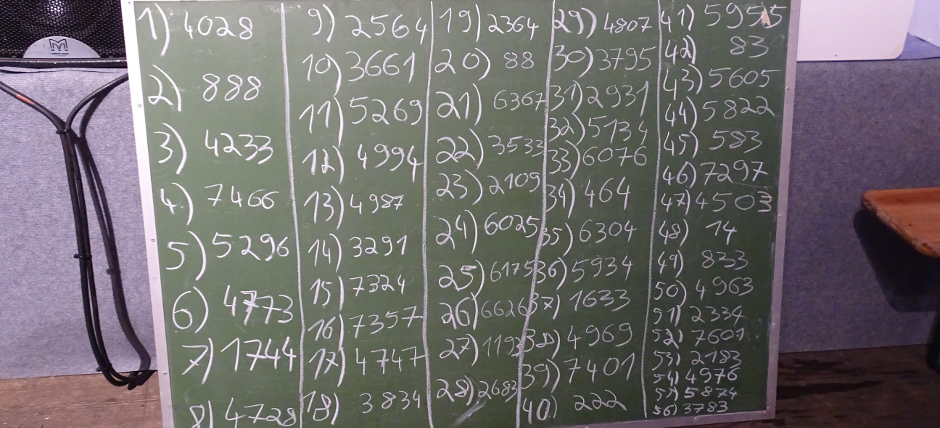 1) 4028
2) 888
3) 4233
4) 7466
5) 5296
6) 4773
7) 1744
8) 4728
9) 2564
10) 3661
11) 5269
12) 4994
13) 4987
14) 3291
15) 7324
16) 7357
17) 4747
18) 3834
19) 2364
20) 88
21) 6367
22) 3533
23) 2109
24) 6025
25) 6175
26) 6626
27) 1193
28) 2683
29) 4807
30) 3795
31) 2931
32) 5134
33) 6076
34) 464
35) 6304
36) 5934
37) 1633
38) 4969
39) 7401
40) 222
41) 5955
42) 83
43) 5605
44) 5822
45) 583
46) 7297
47) 4503
48) 14
49) 833
50) 4963
51) 2334
52) 7601
53) 2183
54) 4976
55) 5874
56) 3783